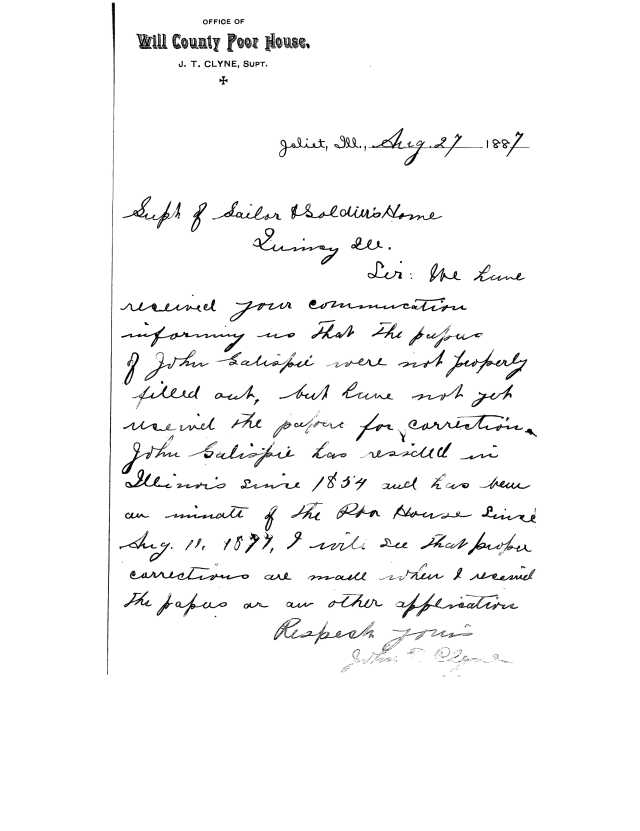 OFFICE OF
Will County Poor House.
J. T. CLYNE, SUPT.
Joliet, Ill., Aug. 27 1887
Supt of Sailor & Soldier's Home
Quincy Ill.
Sir: We have
received your communication
informing us that the papers
of John Galispie were not properly
filled out, but have not yet
received the papers for correction.
John Galispie has resided in
Illinois since 1854 and has been
an inmate of the Poor House since
Aug. 11, I will see that proper
corrections are made when I received
the papers or an other application
Respect yours
John T. Clyne